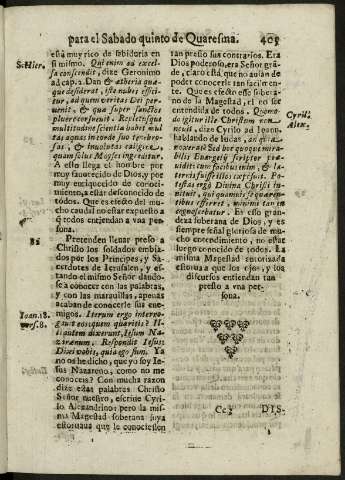 para el Sabado quinto de Quaresma. 405
està muy rico de sabiduria en
S. Hier. si mismo. Qui enim ad excel-
sa conscendit, dize Geronimo
ad cap. 2. Dan & atheria quæ-
que desiderat, iste nubes effici-
tur, ad quem veritas Dei per-
uenit, & qua super iunctos
pluere consueuit. Repletusque
multitudine scientiæ nubes mul-
tas aquas in corde suo tenebro-
sas, & inuolutas caligine,
quam solus Moyses ingreditur.
A esto llega el hombre por
muy fauorecido de Dios, y por
muy enriquecido de conoci-
miento, a estar desconocido de
todos. Que es efecto del mu-
cho caudal no estar expuesto a
q̃ todos entiendan a vna per-
sona.
82 Pretenden lleuar preso a
Christo los soldados embia-
dos por los Principes, y Sa-
cerdotes de Ierusalen, y es-
tando el mismo Señor dando-
se a conocer con las palabras,
y con las marauillas, apenas
acaban de conocerle sus ene-
Ioan. 18. migos. Iterum ergo interro-
vers. 8. gauit eos quem quæritis? Il-
li autem dixerunt, Iesum Na-
zarenum. Respondit Iesus:
Dixi vobis, quia ego sum. Ya
no os he dicho, que yo soy Ie-
sus Nazareno, como no me
conoceis? Con mucha razon
dize estas palabras Christo
Señor nuestro, escriue Cyri-
lo Alexandrino: pero la mis-
ma Magestad soberana suya
estoruaua que le conociessen
tan presto sus contrarios. Era
Dios poderoso, era Señor grã-
de, claro està que no auian de
poder conocerle tan facilmen-
te. Que es efecto esse sobera-
no de la Magestad, el no ser
entendida de todos. Quomo-
Cyril. do igitur ille Christum non
Alex. nouit, dize Cyrilo ad Ioann.
hablando de Iudas, an omnia
nouerat? Sed hoc quoque mira-
bilis Euangelij scriptor præ-
uidit cum facibus enim, & la-
ternis fuisse illos expressit. Po-
testas ergo Diuina Christi in-
nituit, qui quamuis se quæren-
tibus offerret, minime tamen
cognoscebatur. Es esso gran-
deza soberana de Dios, y es
siempre señal gloriosa de mu-
cho entendimiento, no estar
luego conocido de todos. La
misma Magestad autorizada
estorua a que los ojos, y los
discursos entiendan tan
presto a vna per-
sona.
Cc 3 DIS-